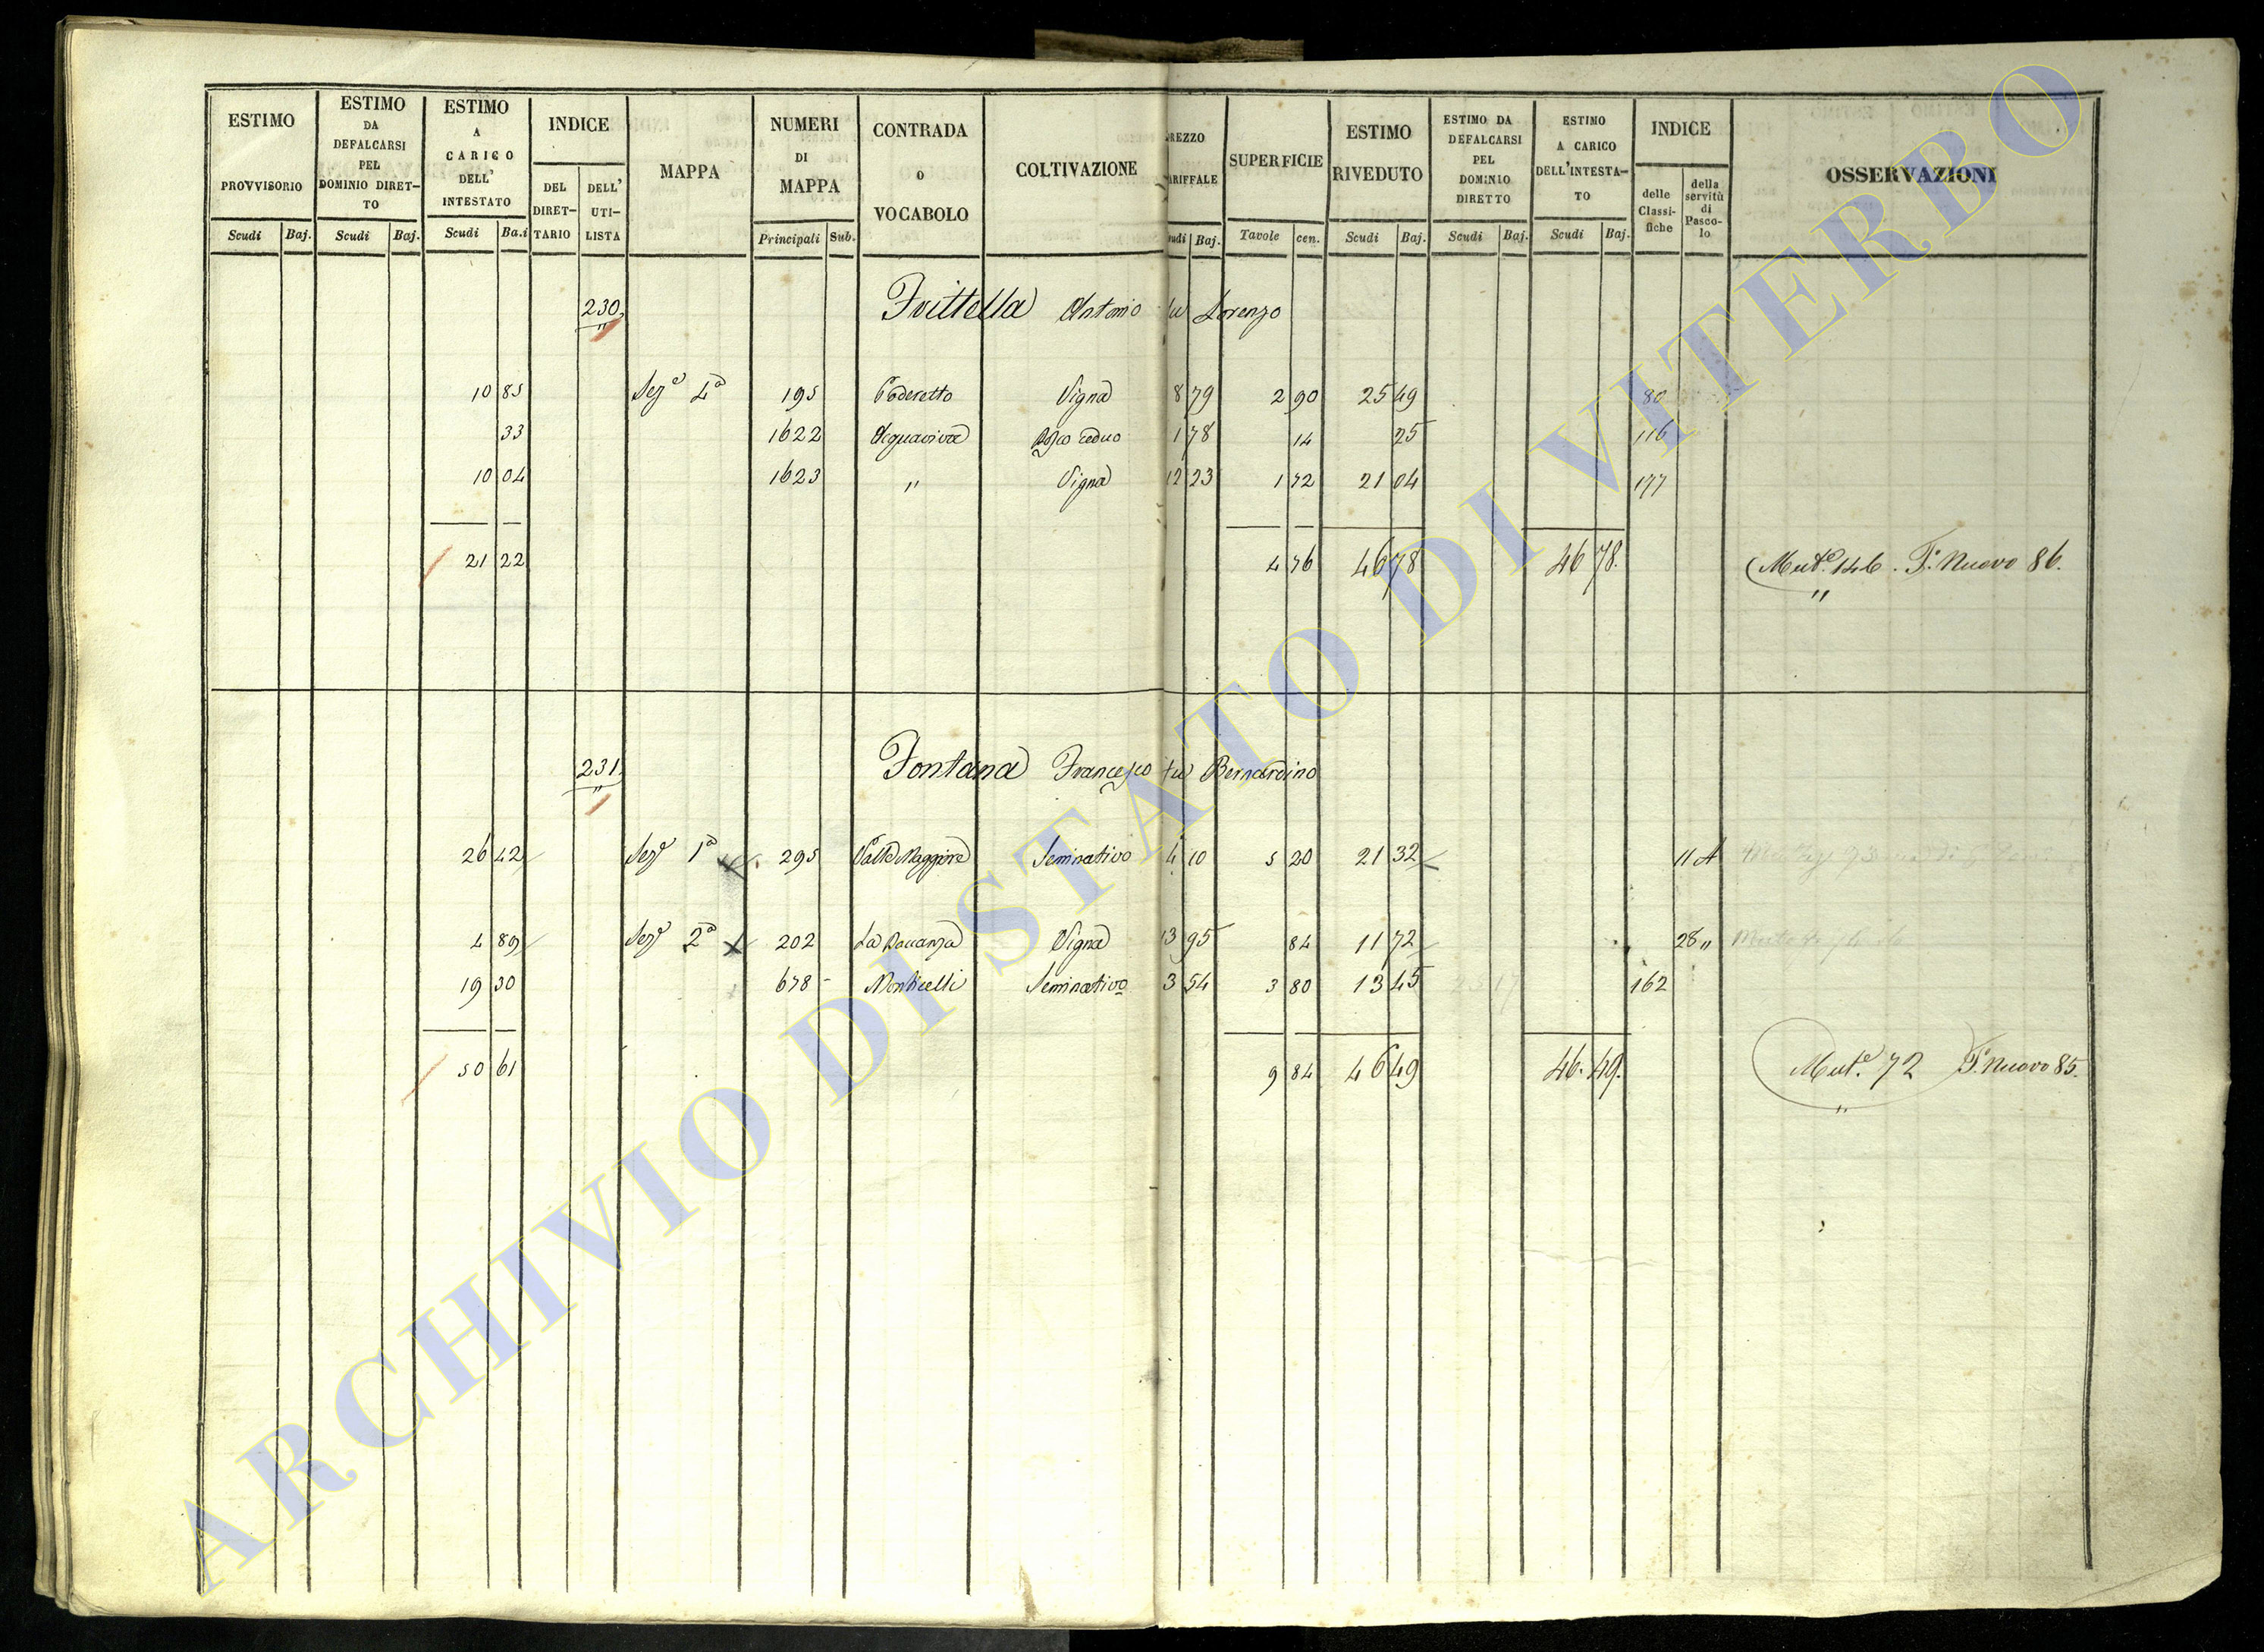 ESTIMO PROVVISORIO
Scudi Baj.
ESTIMO DA DEFALCARSI PEL DOMINIO DIRET- TO
Scudi Baj.
ESTIMO A CARICO DELL' INTESTATO
Scudi Ba.i
INDICE
DEL DIRET- TARIO
DELL' UTI- LISTA
MAPPA
NUMERI DI MAPPA
Principali Sub.
CONTRADA O VOCABOLO
COLTIVAZIONE
REZZO ARIFFALE
udi Baj.
SUPERFICIE
Tavole cen.
ESTIMO RIVEDUTO
Scudi Baj.
ESTIMO DA DEFALCARSI PEL DOMINIO DIRETTO
Scudi Baj.
ESTIMO A CARICO DELL'INTESTA- TO
Scudi Baj.
INDICE
delle Classi- fiche
della servitù di Pasco- lo
OSSERVAZIONI
230 Frittella Antonio fu Lorenzo
10 85 Seze 4a 195 Poderetto Vigna 8 79 2 90 25 49 80
33 1622 Acquaviva Bosco ceduo 1 78 14 25 116
10 04 1623 " Vigna 12 23 1 72 21 04 177
21 22 4 76 46 78 46 78. Mute. 146. F. Nuovo 86.
231 Fontana Francesco fu Bernardino
26 42 Seze 1a 295 Valle Maggiore Seminativo 4 10 5 20 21 32 11 A
4 89 Seze 2a 202 La Vigna 13 95 84 11 72 28 "
19 30 678 Monticelli Seminativo 3 54 3 80 13 45 162
50 61 9 84 46 49 46. 49. Mute. 72 F. Nuovo 85.
ARCHIVIO DI STATO DI VITERBO